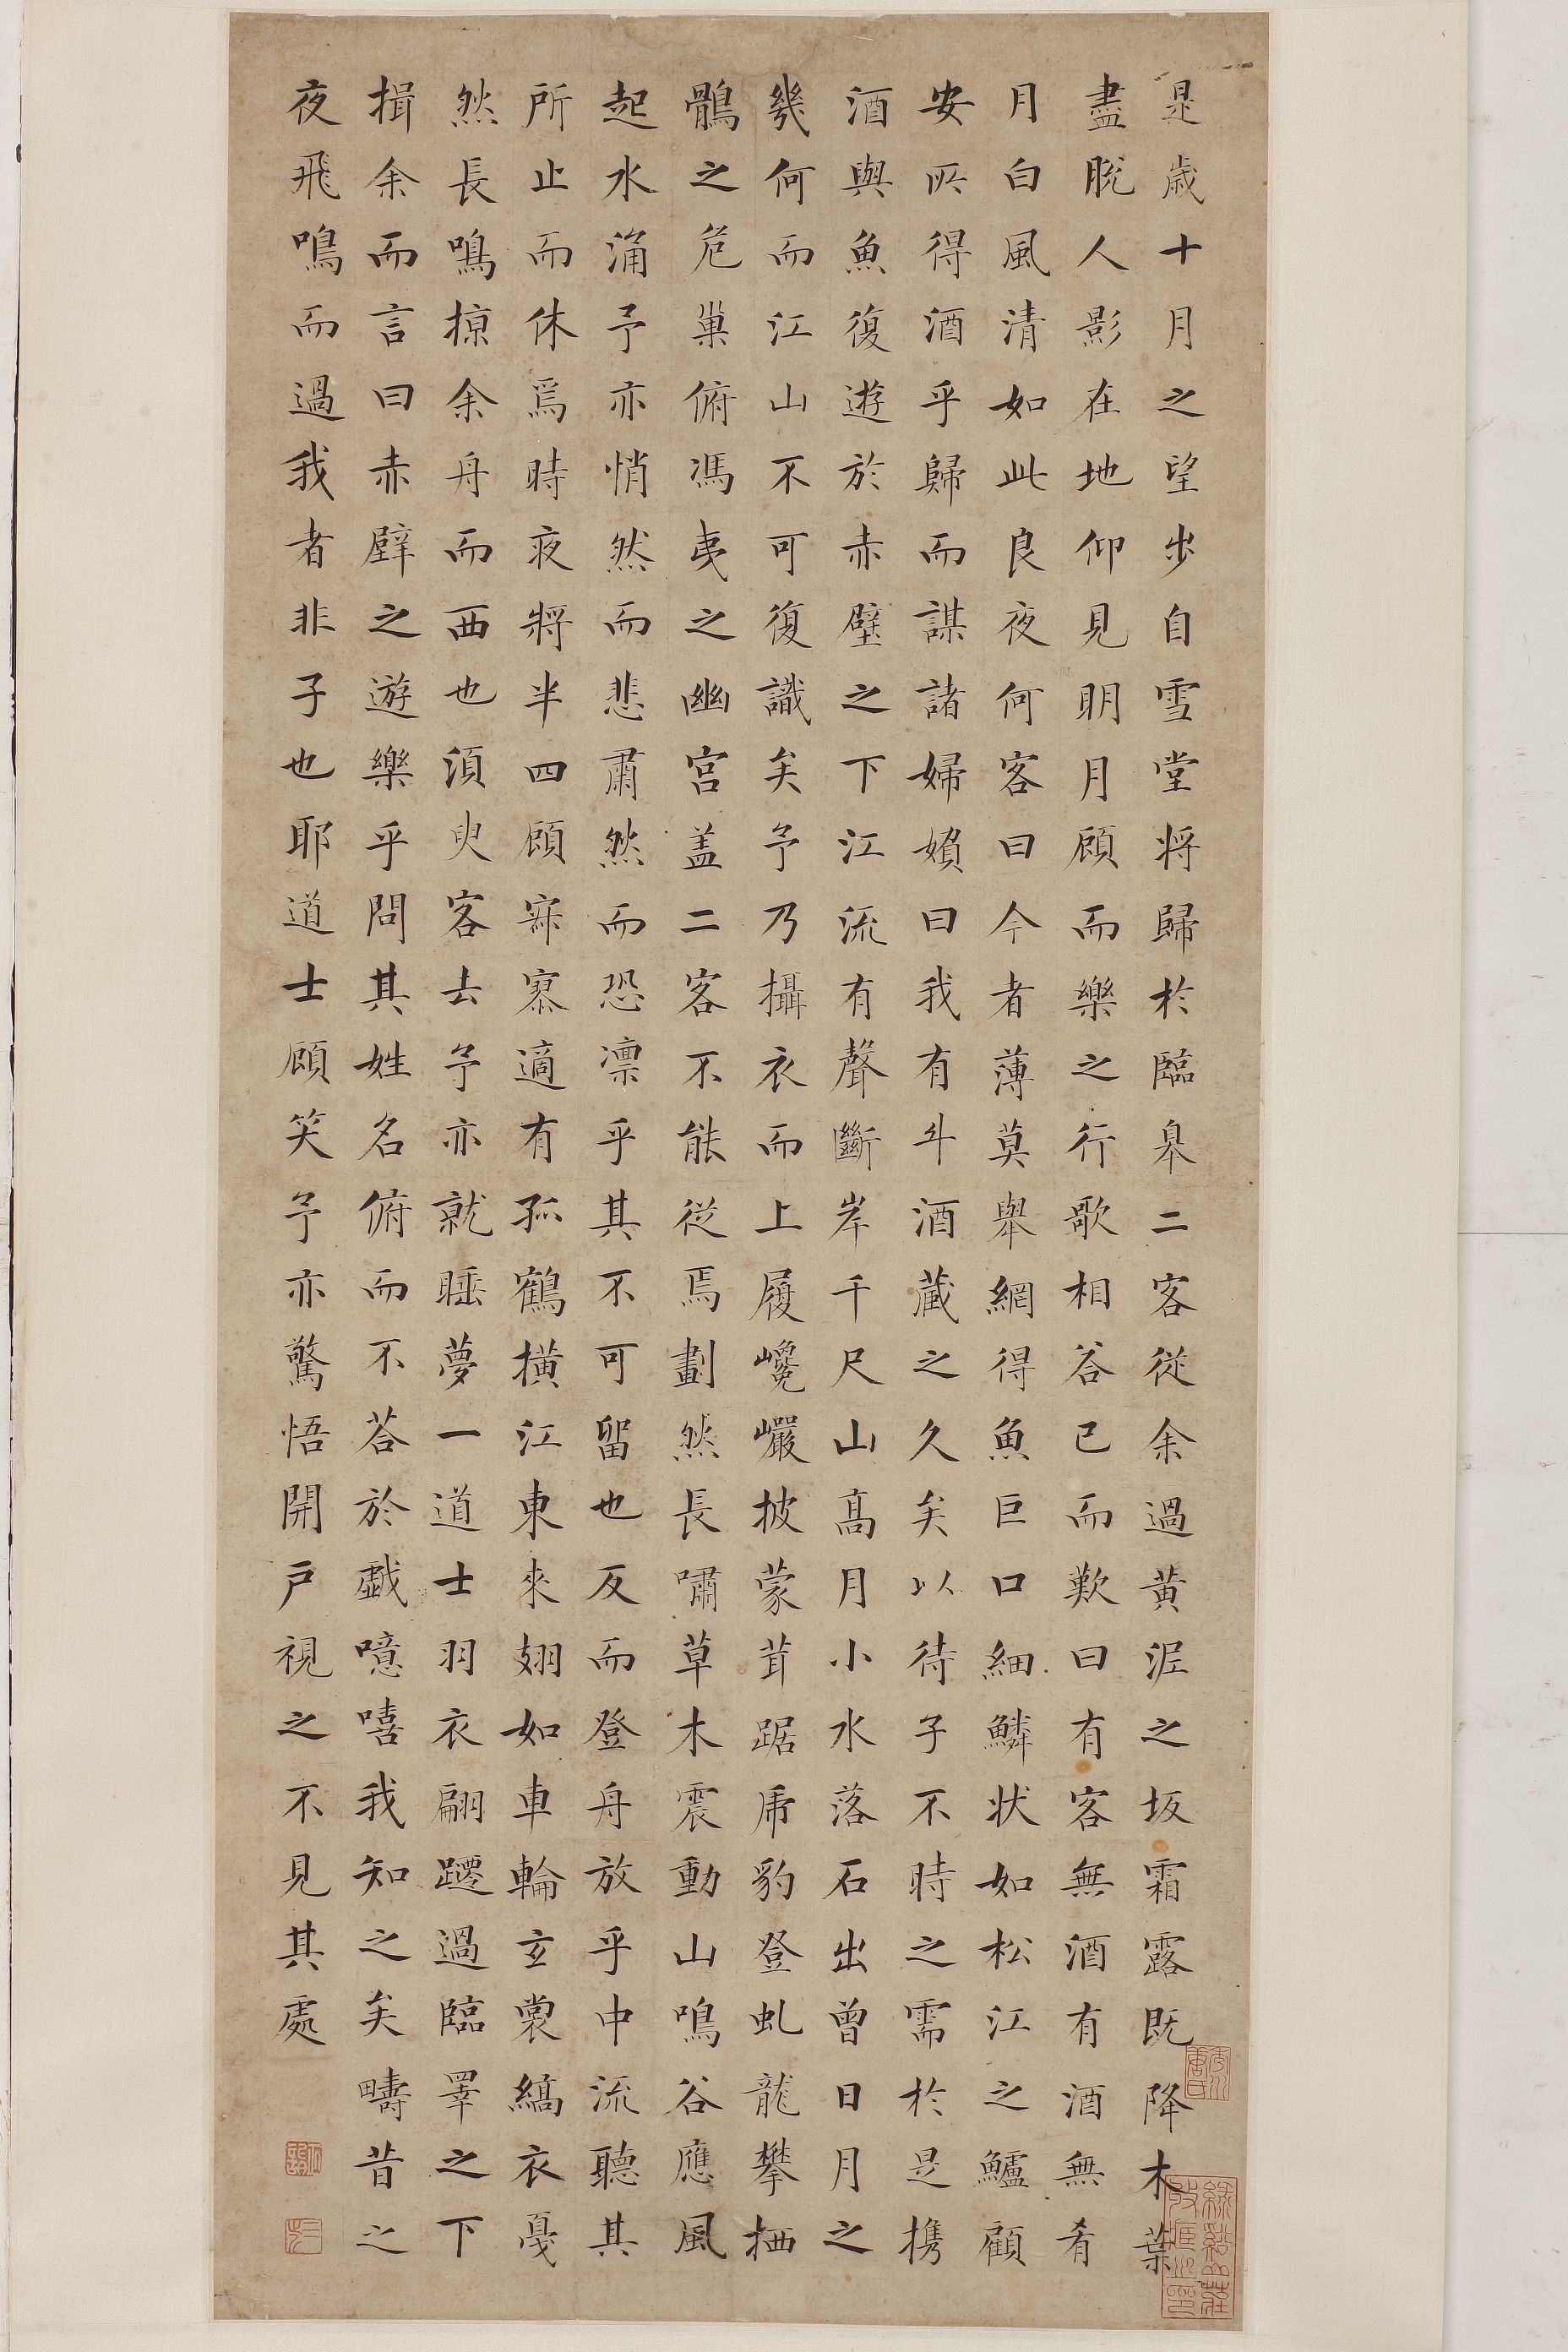 是歲十月之望步自雪堂將歸於臨皋二客從余過黃泥之坂霜露既降木葉
盡脫人影在地仰見明月顧而樂之行歌相答已而歎曰有客無酒有酒無肴
月白風清如此良夜何客曰今者薄莫舉網得魚巨口細鱗狀如松江之鱸顧
安所得酒乎歸而謀諸婦婦曰我有斗酒藏之久矣以待子不時之需於是携
酒與魚復遊於赤壁之下江流有聲斷岸千尺山高月小水落石出曾日月之
幾何而江山不可復識矣予乃攝衣而上履巉巖披蒙茸踞虎豹登虬龍攀栖
鶻之危巢俯馮夷之幽宮盖二客不能從焉劃然長嘯草木震動山鳴谷應風
起水涌予亦悄然而悲肅然而恐凛乎其不可留也反而登舟放乎中流聽其
所止而休焉時夜將半四顧寂寥適有孤鶴橫江東來翅如車輪玄裳縞衣戛
然長鳴掠余舟而西也須臾客去予亦就睡夢一道士羽衣翩躚過臨睪之下
揖余而言曰赤壁之遊樂乎問其姓名俯而不荅於戲噫嘻我知之矣疇昔之
夜飛鳴而過我者非子也耶道士顧笑予亦驚悟開戶視之不見其處